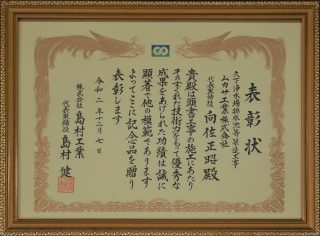 表彰状
久下浄水場排水池等築造工事
山カサ工業株式会社
代表取締役 向佐正昭殿
貴殿は頭書工事の施工にあたり
そのすぐれた技術力をもって優秀な
成果をあげられた功績は誠に
顕著で他の模範であります
よってここに記念品を贈り
表彰します
令和二年十二月七日
株式会社 島村工業
代表取締役 島村健